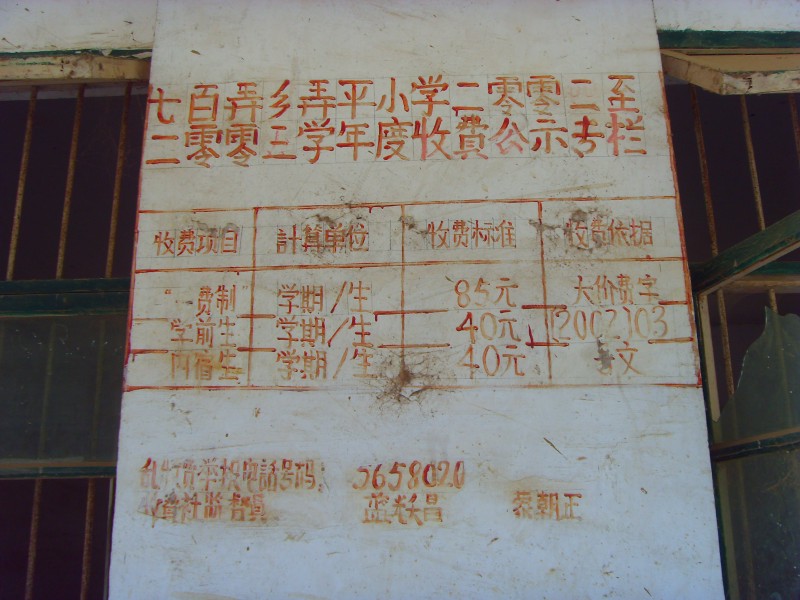 七百弄乡弄平小学二零零二至
二零零三学年度收費公示专栏
收费项目 計算单位 收费标准 收费依据
"一费制" 学期/生 85元 大价费字
学前生 学期/生 40元 [2002]03
内宿生 学期/生 40元 号文
乱收费举报电話号码: 5658020
收費社监督員 蓝兴昌 蒙朝正